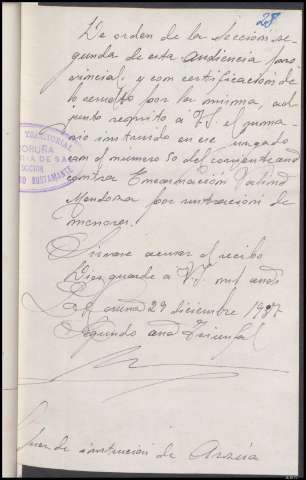 28
De orden de la Sección se-
gunda de esta Audiencia pro
vincial, y con certificación de
lo resuelto por la misma, ad-
junto remito a V.S. el suma
rio instruido en ese juzgado
con el número 50 del corriente año
contra Encarnación
Mendoza por sustracción de
menores.
Sirvase acusar el recibo
Dios guarde a V.S. muchos años
La Coruña 29 diciembre 1937
Segundo año Triunfal
TERRITORIAL
CORUÑA
BUSTAMANTE
Juez de instrucción de Arzúa